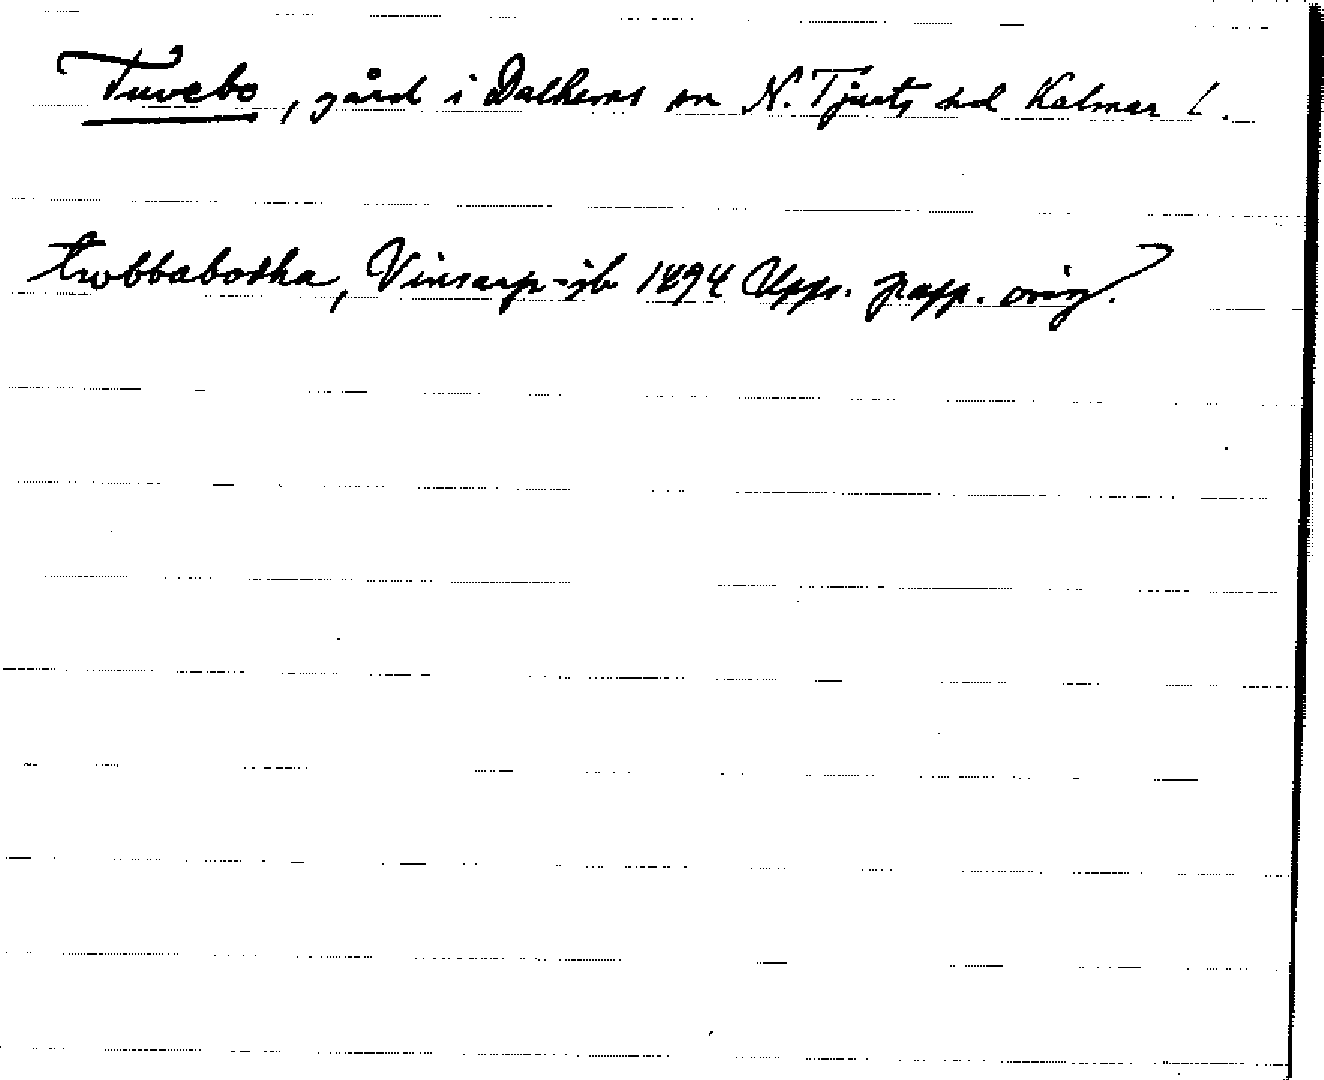 Tuvebo, gård i Dalhems sn N. Tjusts hd Kalmar l.
twbbabodha, Vinsarp-jb 1494 Upps. papp. orig.